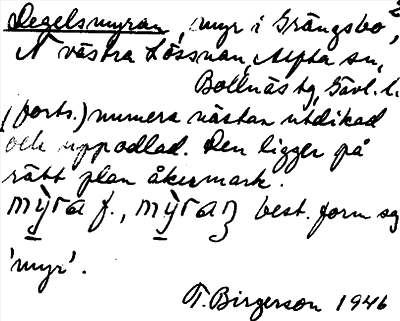 Degelsmyran, myr i Grängsbo, 2
N västra Lössnan, Alfta sn,
Bollnäs tg, Gävl. l.
(forts.) numera nästan utdikad
och uppodlad. Den ligger på
rätt plan åkermark.
mỳra f., mỳraṇ best. form sg
'myr'.
T. Birgerson 1946